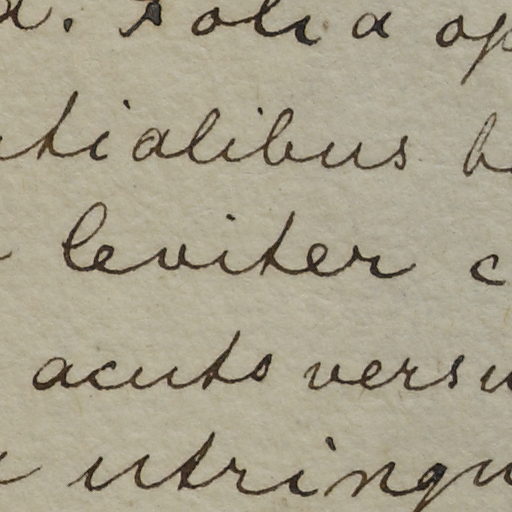 . Folia op
tialibus
leviter c
acuto versu
utrinqu